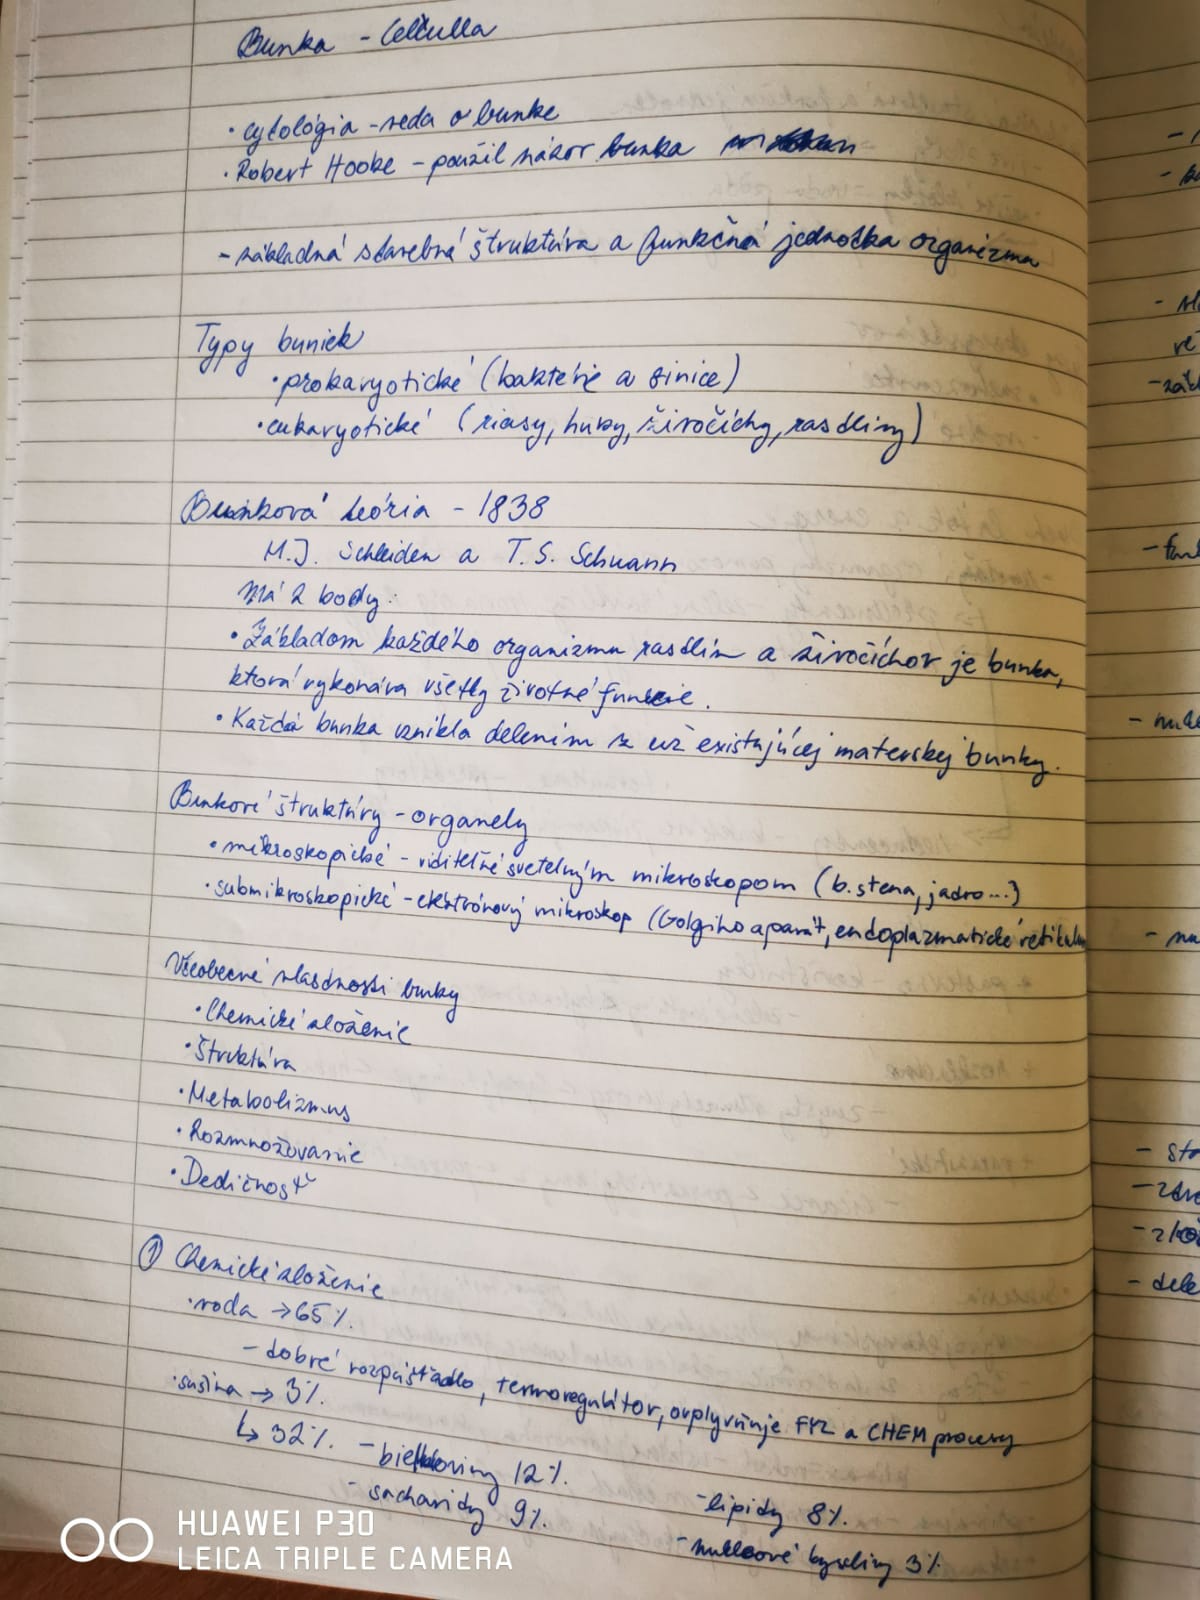 Bunka - Cellulla
• cytológia - veda o bunke
• Robert Hooke - použil názov bunka
- základná stavebná štruktúra a funkčná jednotka organizmu
Typy buniek
• prokaryotické (baktérie a sinice)
• eukaryotické (riasy, huby, živočíchy, rastliny)
Bunková teória - 1838
M.J. Schleiden a T.S. Schwann
Má 2 body:
• Základom každého organizmu rastlín a živočíchov je bunka,
ktorá vykonáva všetky životné funkcie.
• Každá bunka vznikla delením z už existujúcej materskej bunky.
Bunkové štruktúry - organely
• mikroskopické - viditeľné svetelným mikroskopom (b. stena, jadro...)
• submikroskopické - elektrónový mikroskop (Golgiho aparát, endoplazmatické retikulum
Všeobecné vlastnosti bunky
• Chemické zloženie
• Štruktúra
• Metabolizmus
• Rozmnožovanie
• Dedičnosť
① Chemické zloženie
• voda → 65%.
- dobré rozpúšťadlo, termoregulátor, ovplyvňuje FYZ a CHEM procesy
• sušina → 3%.
↳ 32%. - bielkoviny 12%.
- sacharidy 9%.
- lipidy 8%.
- nukleové kyseliny 3%
HUAWEI P30
LEICA TRIPLE CAMERA